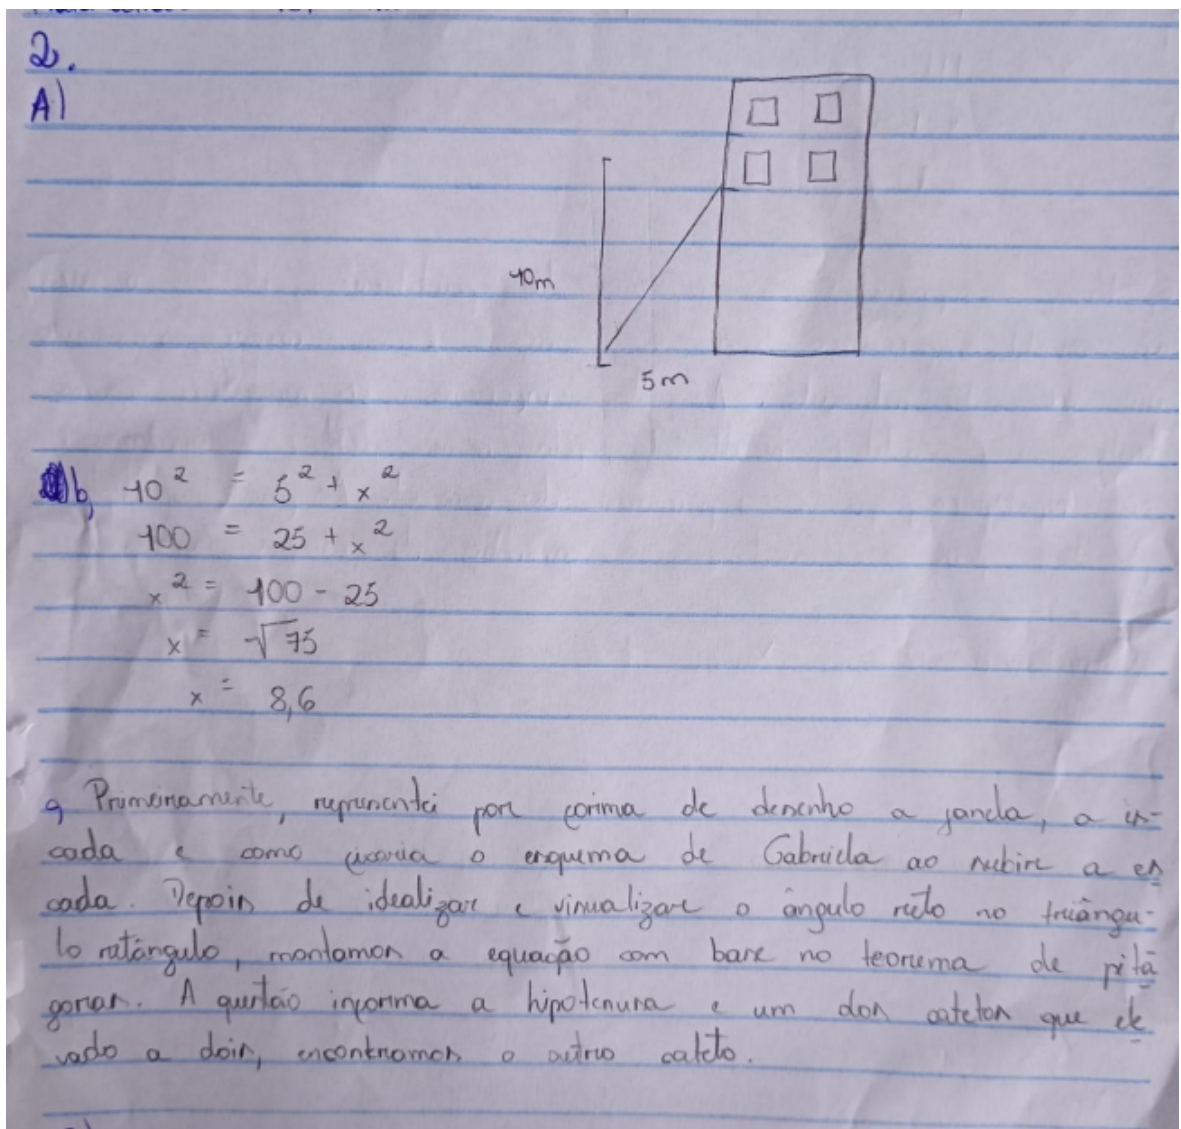 2.
A)
10m
5m
b, 10² = 5² + x²
100 = 25 + x²
x² = 100 - 25
x = √75
x = 8,6
c, Primeiramente, representei por forma de desenho a janela, a es-
cada e como ficaria o esquema de Gabriela ao subir a es
cada. Depois de idealizar e visualizar o ângulo reto no triângu-
lo retângulo, montamos a equação com base no teorema de pitá
goras. A questão informa a hipotenusa e um dos catetos que ele
vado a dois, encontramos o outro cateto.